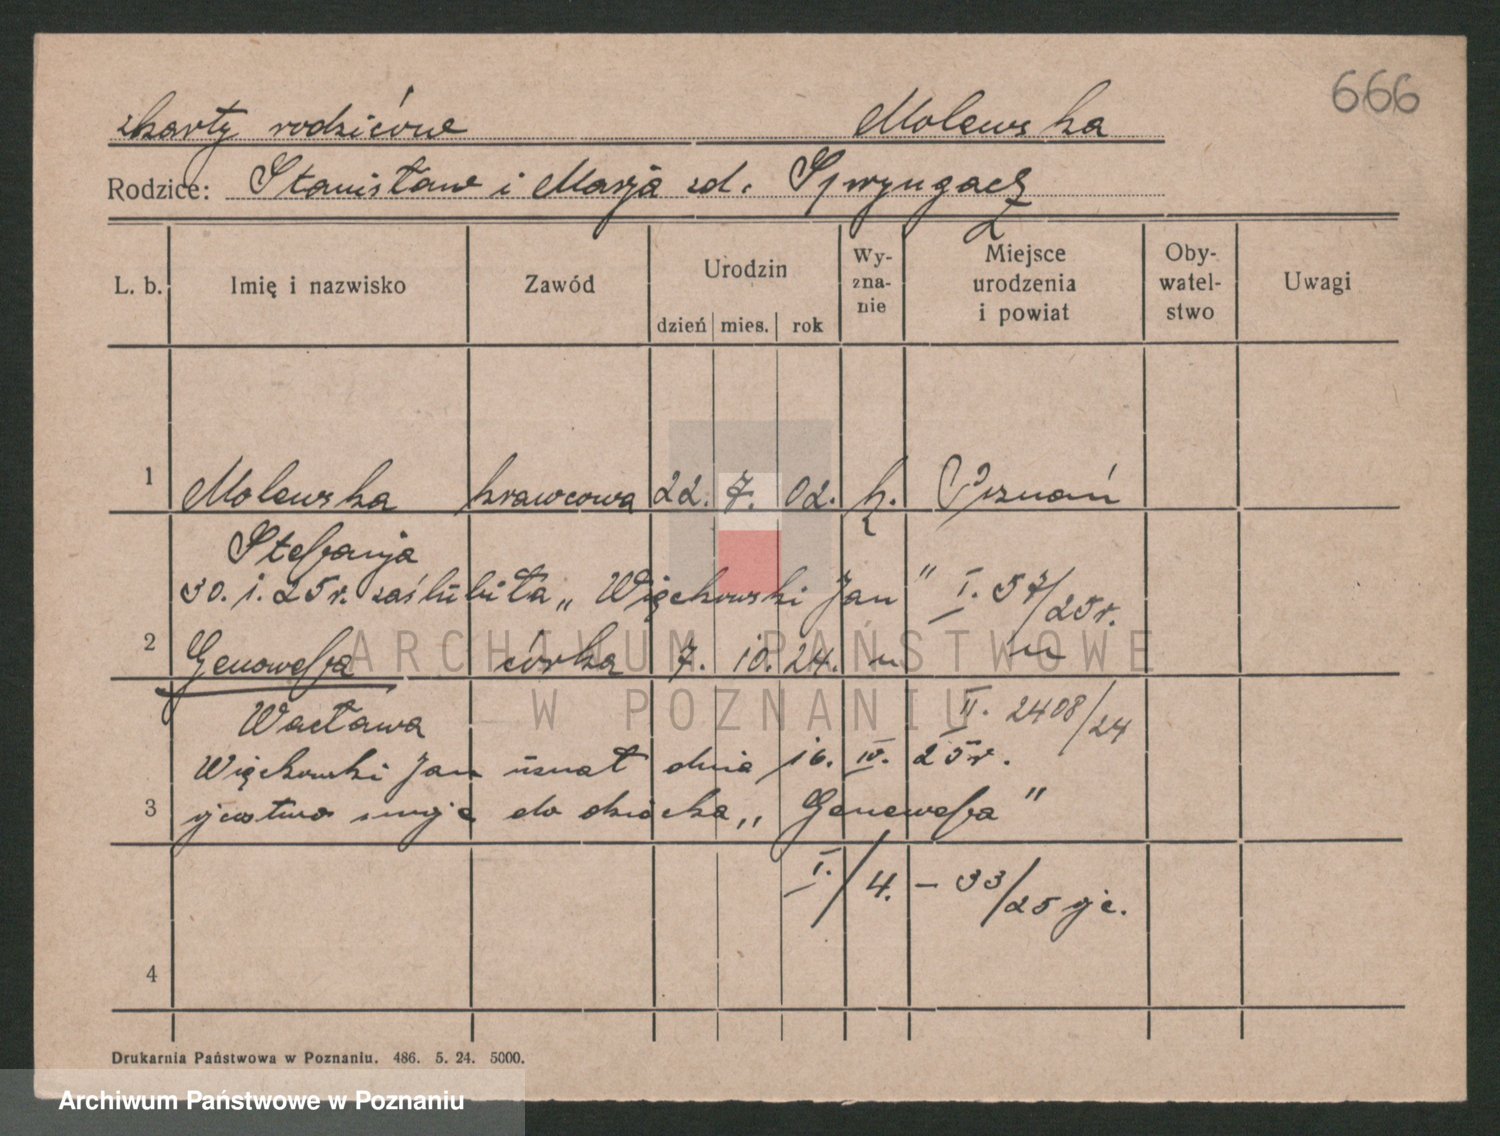 666
z karty rodziców Molewska
Rodzice: Stanisław i Marja zd.
L. b. Imię i nazwisko Zawód Urodzin dzień mies. rok Wy-zna-nie Miejsce urodzenia i powiat Oby-watel-stwo Uwagi
1 Molewska krawcowa 22. 7. 02. k. Poznań
Stefanja
30. 1. 25 r. zaślubiła „Więckowski Jan" I. 57/25 r.
2 Genowefa córka 7. 10. 24. " "
Wacława II. 2408/24
Więckowski Jan uznał dnia 16. IV. 25 r.
3 ojcostwo swoje do dziecka „Genowefa"
I./4. – 33/25
4
Drukarnia Państwowa w Poznaniu. 486. 5. 24. 5000.
ARCHIWUM PAŃSTWOWE
W POZNANIU
Archiwum Państwowe w Poznaniu